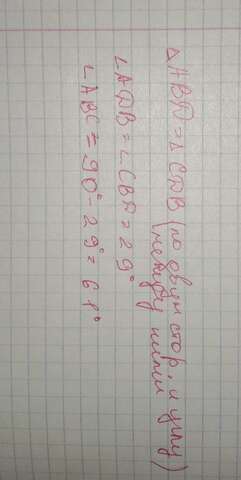 △ABD = △CDB (по двум стор. и углу
между ними)
∠ADB = ∠CBD = 29°
∠ABC = 90° - 29° = 61°